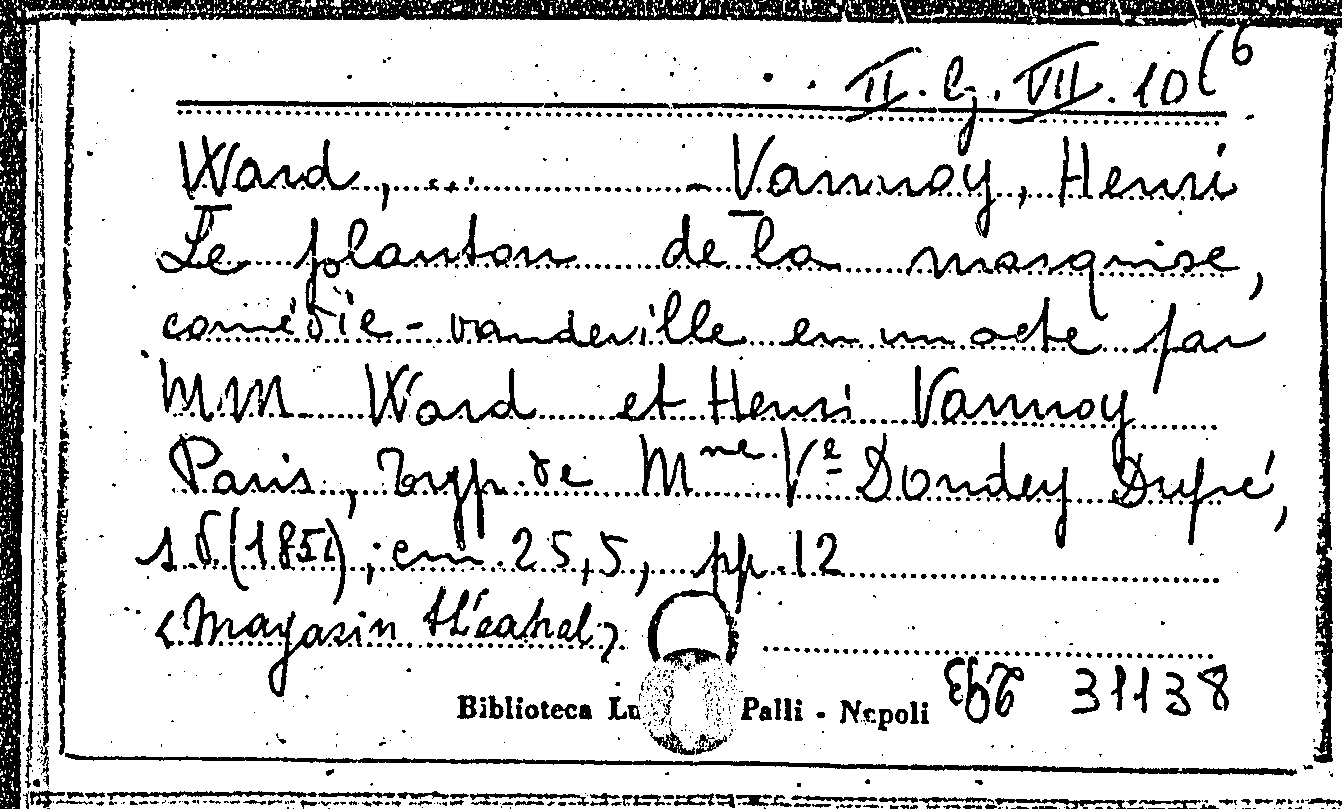 II. G. VII. 10(6
Ward, ... - Vannoy, Henri
Le planton de la marquise,
comédie-vaudeville en un acte par
MM. Ward et Henri Vannoy
Paris, Typ. de Mme Ve Dondey Dupré,
s.d. (1851); cm. 25,5, pp. 12
<Magasin théatral>
Biblioteca Lu Palli - Nepoli 31138